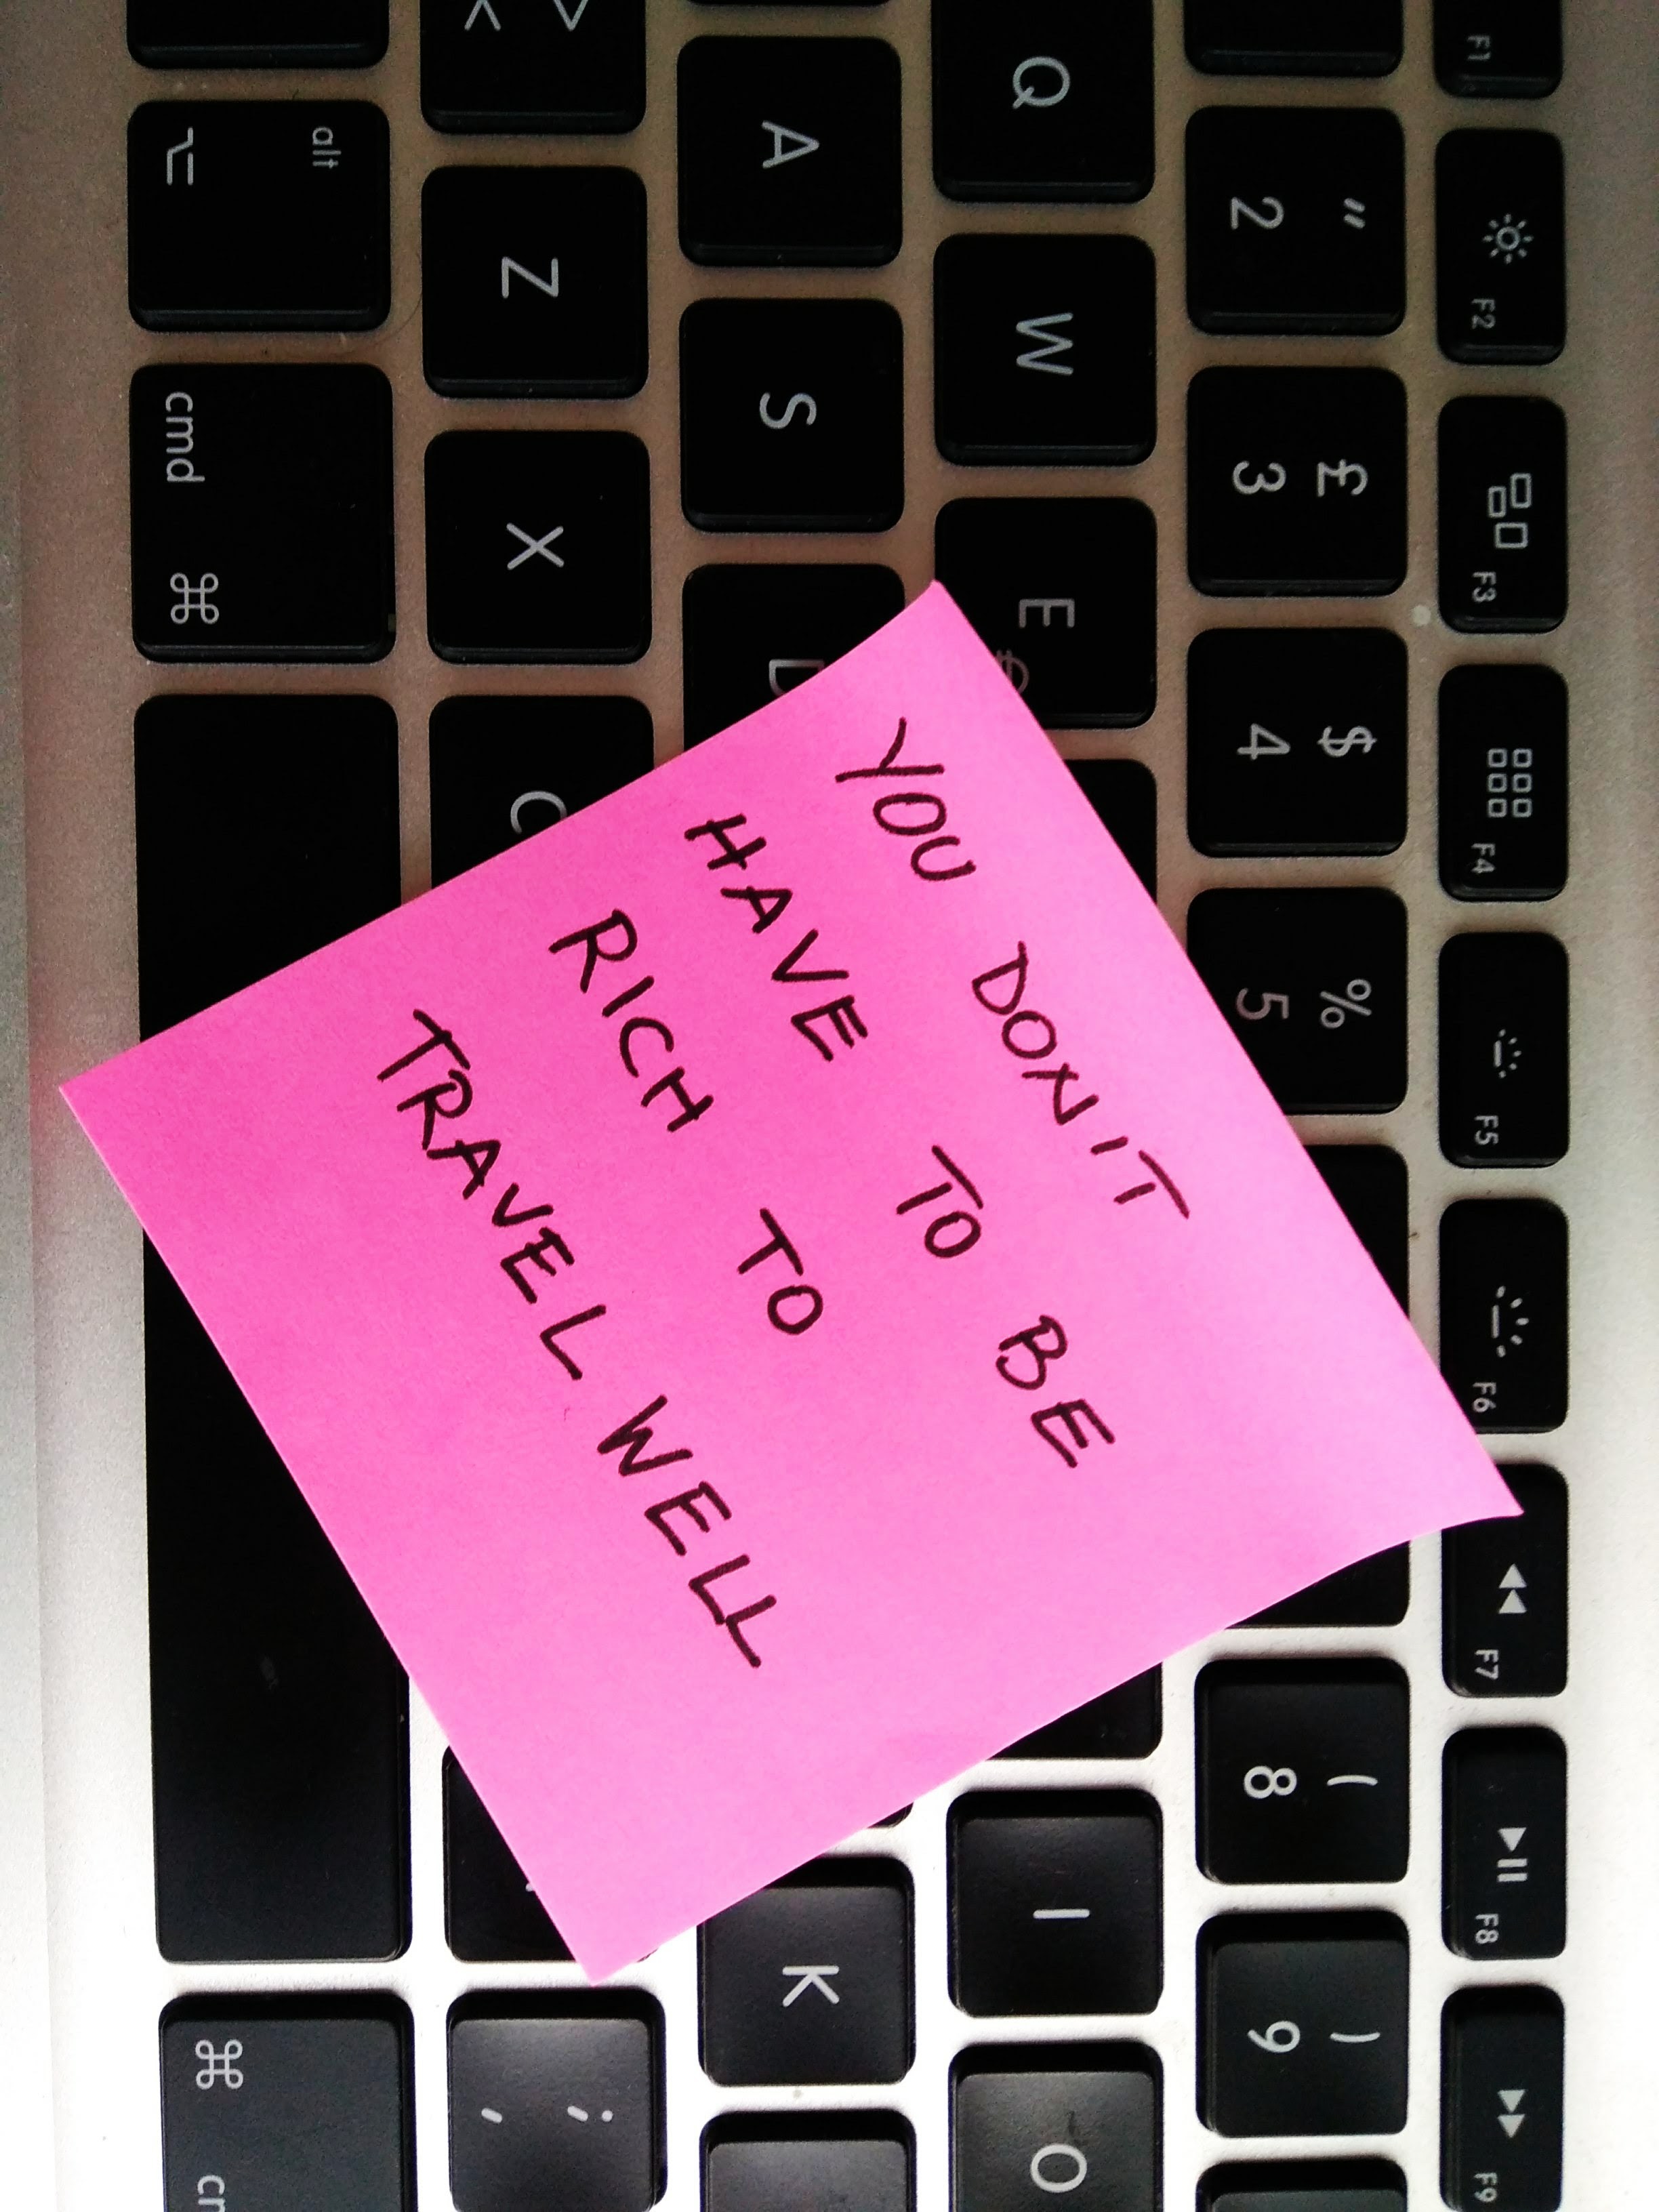 YOU DON'T
HAVE TO BE
RICH TO
TRAVEL WELL
F1
F2
F3
F4
F5
F6
F7
F8
F9
" 2
£ 3
$ 4
% 5
( 8
) 9
Q
W
E
I
O
A
S
D
K
> <
Z
X
C
; ,
alt
cmd